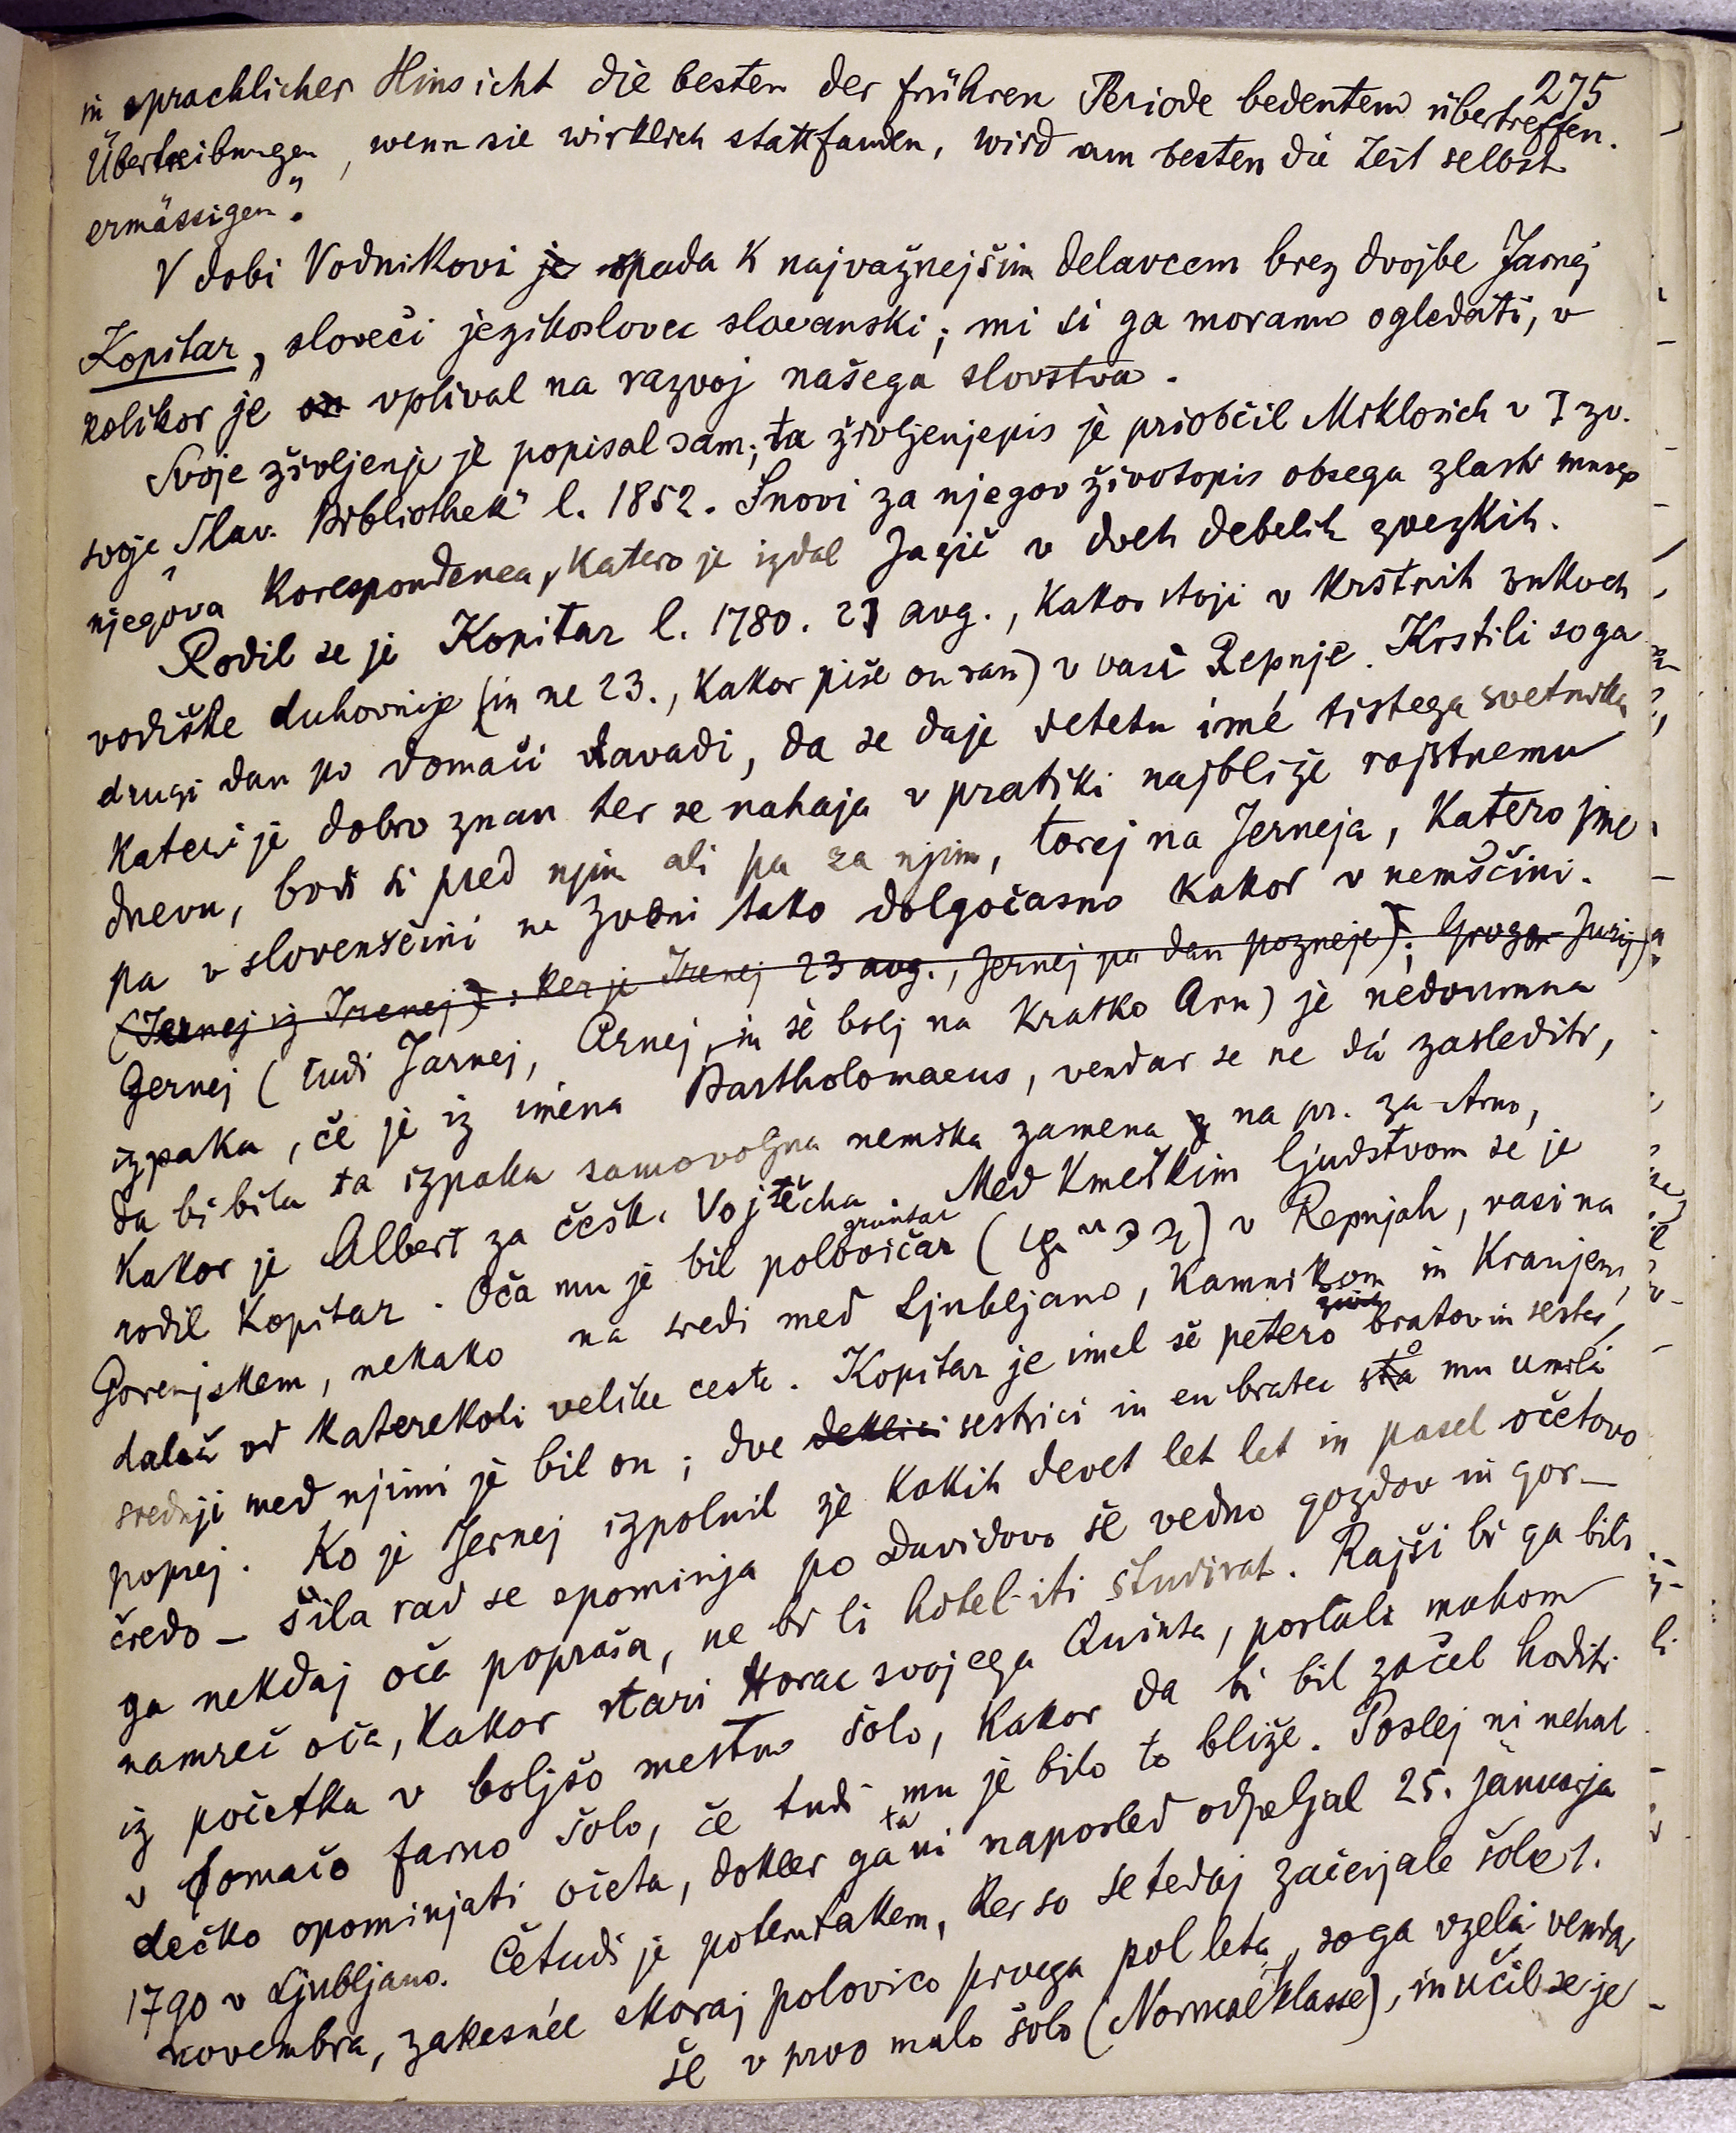 275
in sprachlicher Hinsicht die besten der frühren Periode bedeutend übertreffen.
Übertreibungen, wenn sie wirklich stattfanden, wird am besten die Zeit selbst
ermässigen".
V dobi Vodnikovi je spada k najvažnejšim delavcem brez dvojbe Jarnej
Kopitar, sloveči jezikoslovec slovanski; mi si ga moramo ogledati, v
kolikor je on vplival na razvoj našega slovstva.
Svoje življenje je popisal sam; ta življenjepis je priobčil Miklosich v I zv.
svoje „Slav. Bibliothek" l. 1852. Snovi za njegov životopis obsega zlasti mnogo
njegova korespondenca, katero je izdal Jagić v dveh debelih zvezkih.
Rodil se je Kopitar l. 1780. 21 avg., kakor stoji v krstnih bukvah
vodiške duhovnije (in ne 23., kakor piše on sam) v vasi Repnje. Krstili so ga
drugi dan po domači navadi, da se daje detetu imé tistega svetnika,
kateri je dobro znan ter se nahaja v pratiki najbliže rojstnemu
dnevu, bodi si pred njim ali pa za njim, torej na Jerneja, katero ime
pa v slovenščini ne zveni tako dolgočasno kakor v nemščini.
(Jernej iz Irenej): ker je Irenej 23 avg., Jernej pa dan pozneje); Jurij)
Jernej (tudi Jarnej, Arnej, in še bolj na kratko Arn) je nedoumna
izpaka, če je iz imena Bartholomaeus, vendar se ne dá zaslediti,
da bi bila ta izpaka samovoljna nemška zamena na pr. za Arno,
kakor je Albert za češk. Vojtěcha. Med kmečkim ljudstvom se je
rodil Kopitar. Oča mu je bil polovičar gruntar v Repnjah, vasi na
Gorenjskem, nekako na sredi med Ljubljano, Kamnikom in Kranjem,
daleč od katerekoli velike ceste. Kopitar je imel še petero bratov in sester,
srednji med njimi je bil on; dve deklici sestrici in en bratec so mu umrli
poprej. Ko je Jernej izpolnil že kakih devet let let in pasel očetovo
čredo – šila rad se spominja po Davidovo še vedno gozdov in gor –
ga nekdaj oča popraša, ne bi li hotel iti študirat. Rajši bi ga bili
namreč oča, kakor stari Horac svojega Quinta, poslali mahom
iz početka v boljšo mestno šolo, kakor da bi bil začel hoditi
v domačo farno šolo, če tudi mu je bilo to bliže. Poslej ni nehal
dečko opominjati očeta, dokler ga ta ni naposled odpeljal 25. januarja
1790 v Ljubljano. Četudi je potemtakem, ker so se tedaj začenjale šole 1.
novembra, zakesnil skoraj polovico prvega pol leta, so ga vzeli vendar
še v prvo malo šolo (Normalklasse), in učil se je